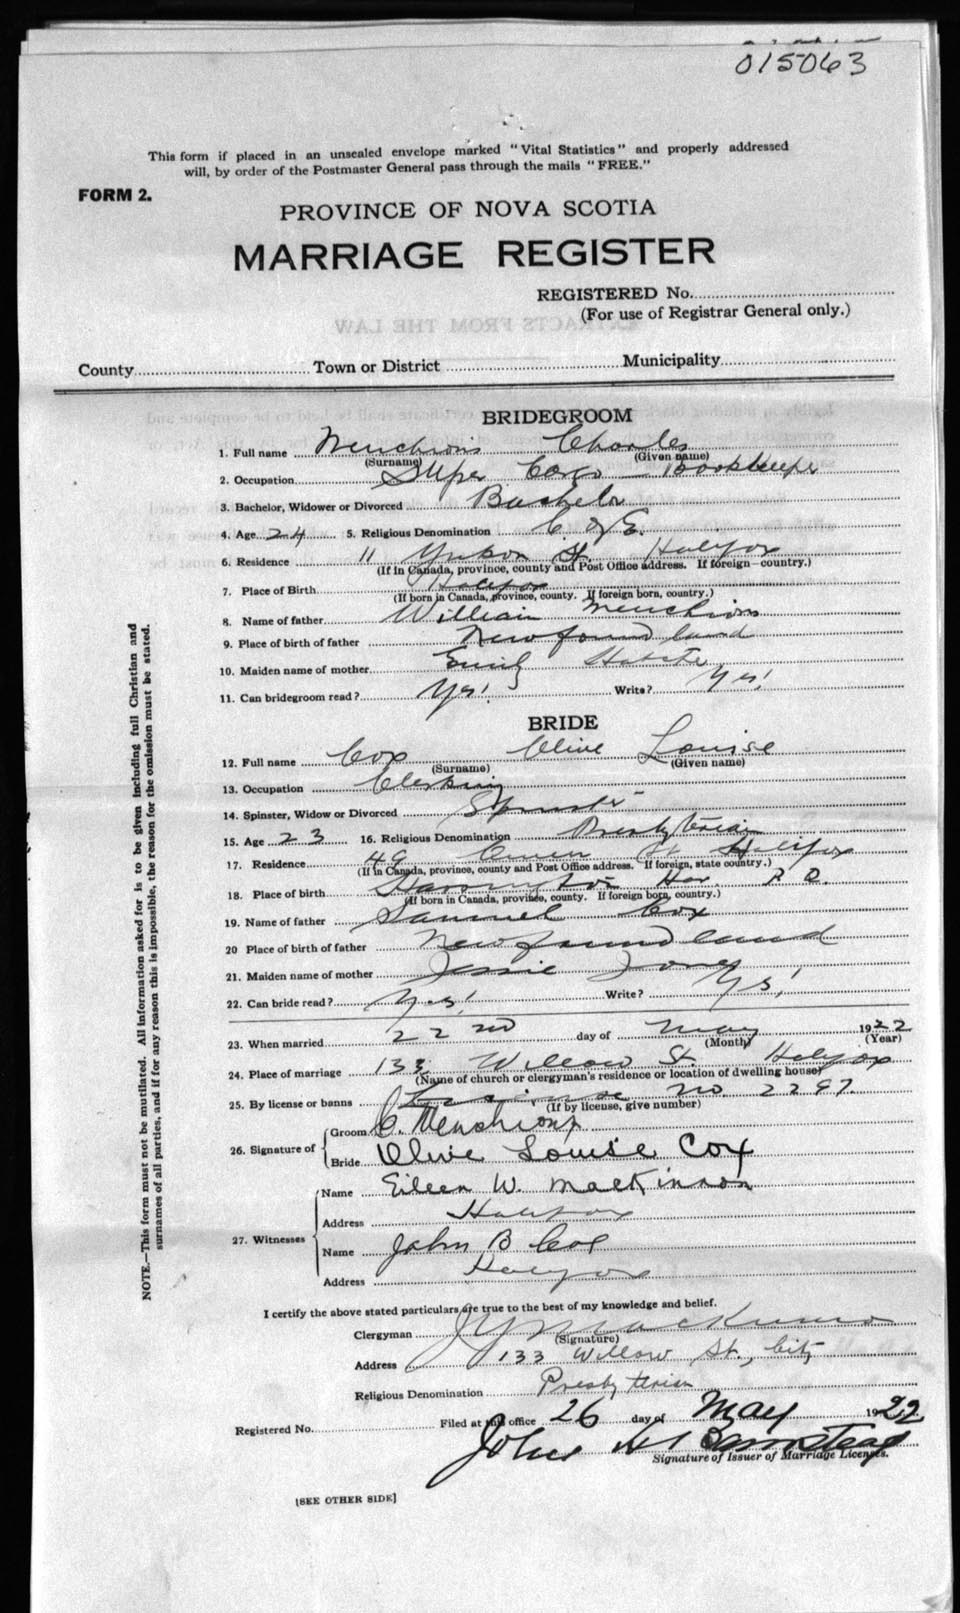 015063
This form if placed in an unsealed envelope marked "Vital Statistics" and properly addressed
will, by order of the Postmaster General pass through the mails "FREE."
FORM 2.
PROVINCE OF NOVA SCOTIA
MARRIAGE REGISTER
REGISTERED No.
(For use of Registrar General only.)
EXTRACTS FROM THE LAW
County Town or District Municipality
BRIDEGROOM
1. Full name Menchions Charles
(Surname) (Given name)
2. Occupation Super Cargo — Bookkeeper
3. Bachelor, Widower or Divorced Bachelor
4. Age 24 5. Religious Denomination C of E.
6. Residence 11 Yukon St. Halifax
(If in Canada, province, county and Post Office address. If foreign—country.)
7. Place of Birth Halifax
(If born in Canada, province, county. If foreign born, country.)
8. Name of father William Menchions
9. Place of birth of father Newfoundland
10. Maiden name of mother Emily
11. Can bridegroom read? Yes! Write? Yes!
BRIDE
12. Full name Cox Olive Louise
(Surname) (Given name)
13. Occupation Clerking
14. Spinster, Widow or Divorced Spinster
15. Age 23 16. Religious Denomination Presbyterian
17. Residence 49 St Halifax
(If in Canada, province, county and Post Office address. If foreign, state country.)
18. Place of birth
(If born in Canada, province, county. If foreign born, country.)
19. Name of father Samuel Cox
20 Place of birth of father Newfoundland
21. Maiden name of mother Jessie Jones
22. Can bride read? Yes! Write? Yes!
23. When married 22nd day of May 1922
(Month) (Year)
24. Place of marriage 133 Willow St. Halifax
(Name of church or clergyman's residence or location of dwelling house)
25. By license or banns License no. 2297.
(If by license, give number)
26. Signature of
Groom C. Menchions
Bride Olive Louise Cox
27. Witnesses
Name Eileen W. MacKinnon
Address Halifax
Name John B Cox
Address Halifax
I certify the above stated particulars are true to the best of my knowledge and belief.
Clergyman
(Signature)
Address 133 Willow St., City
Religious Denomination Presbyterian
Registered No. Filed at this office 26 day of May 1922
John H Barnstead
Signature of Issuer of Marriage Licenses.
[SEE OTHER SIDE]
NOTE.—This form must not be mutilated. All information asked for is to be given including full Christian and
surnames of all parties, and if for any reason this is impossible, the reason for the omission must be stated.